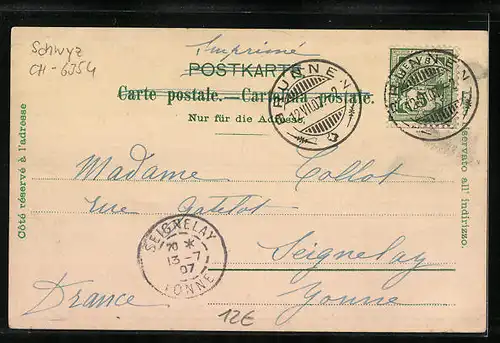 Schwyz
CH-6354
Imprimé
POSTKARTE
Carte postale.—Cartolina postale.
Nur für die Adresse.
Côté réservé à l'adresse
riservato all' indirizzo.
BRUNNEN
BRUNNEN
Madame Collot
rue
Seignelay
Yonne
France
SEIGNELAY
13-7
07
YONNE
12€